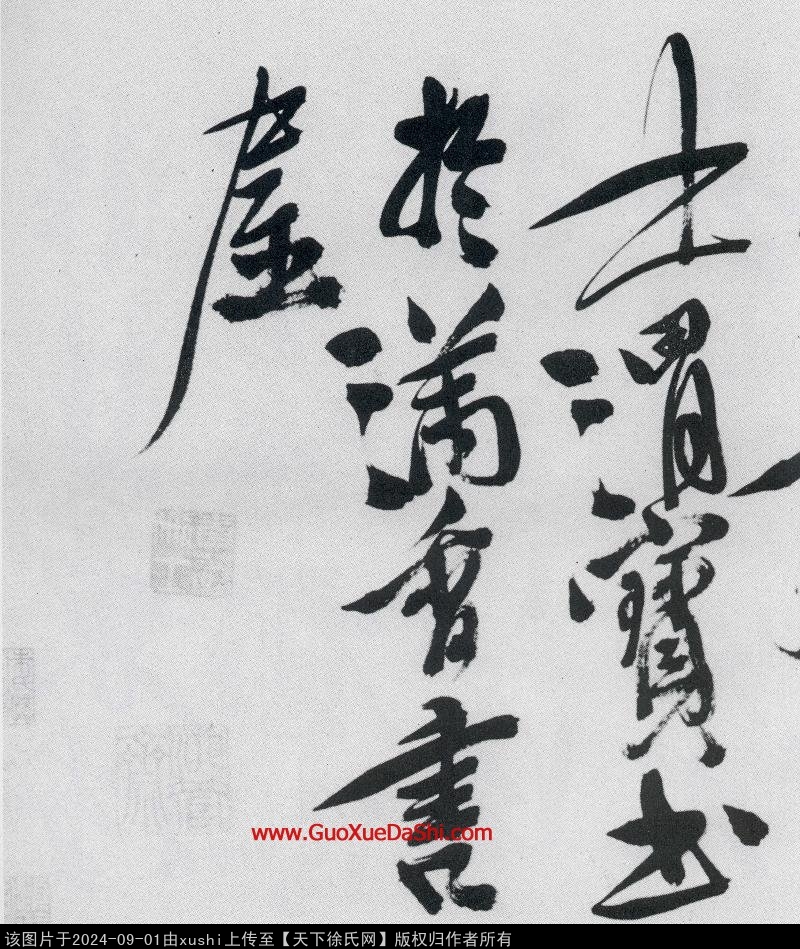 士渭寶书
於满香書
屋
www.GuoXueDaShi.com
该图片于2024-09-01由xushi上传至【天下徐氏网】版权归作者所有